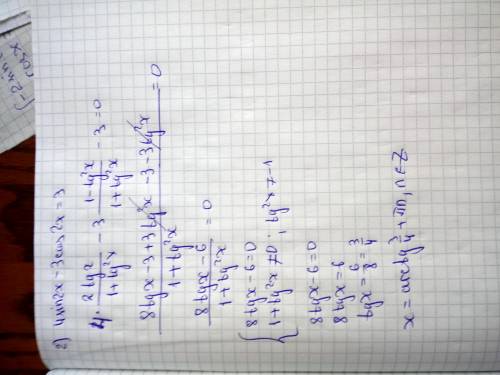 2) 4sin2x-3cos2x=3
4· 2tgx/1+tg²x - 3 1-tg²x/1+tg²x - 3=0
8tgx-3+3tg²x-3-3tg²x/1+tg²x =0
8tgx-6/1+tg²x =0
{8tgx-6=0
1+tg²x≠0; tg²x≠-1
8tgx-6=0
8tgx=6
tgx=6/8=3/4
x=arctg 3/4+πn, n∈Z